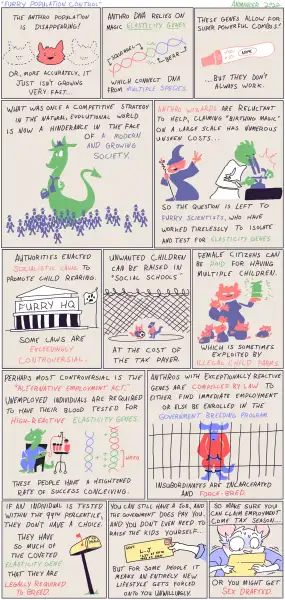 "FURRY POPULATION CONTROL"
THE ANTHRO POPULATION
IS DISAPPEARING!
OR, MORE ACCURATELY, IT
JUST ISN'T GROWING
VERY FAST...
ANTHRO DNA RELIES ON
MAGIC ELASTICITY GENES
[SQUIRREL~]
[~BEAR~]
WHICH CONNECT DNA
FROM MULTIPLE SPECIES.
THESE GENES ALLOW FOR
SUPER POWERFUL COMBOS!
...BUT THEY DON'T
ALWAYS WORK.
WHAT WAS ONCE A COMPETITIVE STRATEGY
IN THE NATURAL, EVOLUTIONAL WORLD
IS NOW A HINDERANCE IN THE FACE
OF A MODERN
AND GROWING
SOCIETY.
ANTHRO WIZARDS ARE RELUCTANT
TO HELP, CLAIMING "BIRTHING MAGIC"
ON A LARGE SCALE HAS NUMEROUS
UNSEEN COSTS...
SO THE QUESTION IS LEFT TO
FURRY SCIENTISTS, WHO HAVE
WORKED TIRELESSLY TO ISOLATE
AND TEST FOR ELASTICITY GENES
AUTHORITIES ENACTED
SOCIALISTIC LAWS TO
PROMOTE CHILD REARING.
FURRY HQ
SOME LAWS ARE
EXCEEDINGLY
CONTROVERSIAL.
UNWANTED CHILDREN
CAN BE RAISED IN
"SOCIAL SCHOOLS"
AT THE COST OF
THE TAX PAYER.
FEMALE CITIZENS CAN
BE PAID FOR HAVING
MULTIPLE CHILDREN.
WHICH IS SOMETIMES
EXPLOITED BY
ILLEGAL CHILD FARMS.
PERHAPS MOST CONTROVERSIAL IS THE
"ALTERNATIVE EMPLOYMENT ACT."
UNEMPLOYED INDIVIDUALS ARE REQUIRED
TO HAVE THEIR BLOOD TESTED FOR
HIGH-REACTIVE ELASTICITY GENES.
THESE PEOPLE HAVE A HEIGHTENED
RATE OF SUCCESS CONCEIVING.
ANTHROS WITH EXCEPTIONALLY REACTIVE
GENES ARE COMPELLED BY LAW TO
EITHER FIND IMMEDIATE EMPLOYMENT
OR ELSE BE ENROLLED IN THE
GOVERNMENT BREEDING PROGRAM.
INSUBORDINATES ARE INCARCERATED
AND FORCE-BRED.
IF AN INDIVIDUAL IS TESTED
WITHIN THE 99TH PERCENTILE,
THEY DON'T HAVE A CHOICE.
THEY HAVE
SO MUCH OF
THE COVETED
ELASTICITY GENE
THAT THEY ARE
LEGALLY REQUIRED
TO BREED.
YOU CAN STILL HAVE A JOB, AND
THE GOVERNMENT DOES PAY YOU,
AND YOU DON'T EVEN NEED TO
RAISE THE KIDS YOURSELF...
BUT FOR SOME PEOPLE IT
MEANS AN ENTIRELY NEW
LIFESTYLE GETS FORCED
ONTO YOU UNWILLINGLY.
SO MAKE SURE YOU
CAN CLAIM EMPLOYMENT
COME TAX SEASON...
OR YOU MIGHT GET
SEX DRAFTED.